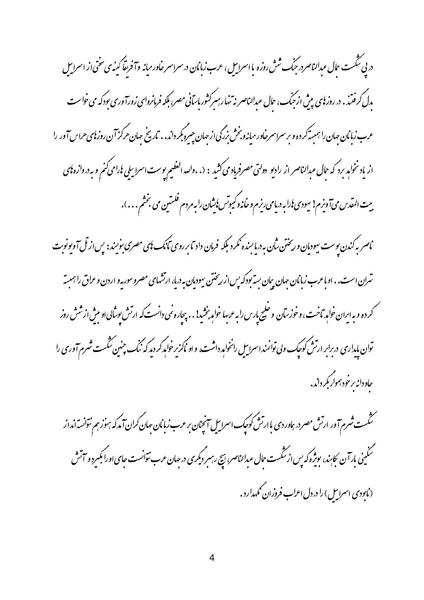 در پی شکست جمال عبدالناصر در جنگ شش روزه با اسراییل، عرب زبانان در سراسر خاورمیانه و آفریقا کینه ی سختی از اسراییل
بدل گرفتند. در روزهای پیش از جنگ، جمال عبدالناصر نه تنها رهبر کشور باستانی مصر، بلکه فرمانروای زورآوری بود که می خواست
عرب زبانان جهان را همبسته کرده و بر سراسر خاورمیانه و بخش بزرگی از جهان چیره گرداند.. تاریخ جهان هرگز آن روزهای هراس آور را
از یاد نخواهد برد که جمال عبدالناصر از رادیو دولتی مصر فریاد می کشید: (..والله العظیم پوست اسراییلی ها را می کنم و به دروازه های
بیت المقدس می آویزم! یهودی ها را به دریا می ریزم و خانه و کیبوتس هایشان را به مردم فلستین می بخشم...).
ناصر به کندن پوست یهودیان و ریختن شان به دریا بسنده نکرد بلکه فرمان داد تا بر روی تانک های مصری بنویسند: پس از تل آویو نوبت
تهران است.. او با عرب زبانان جهان پیمان بسته بود که پس از ریختن یهودیان به دریا، ارتشهای مصر و سوریه و اردن و عراق را همبسته
کرده و به ایران خواهد تاخت، و خوزستان و خلیج پارس را به عربها خواهد بخشید!.. بیچاره نمی دانست که ارتش پوشالی او بیش از شش روز
توان پایداری در برابر ارتش کوچک ولی توانمند اسراییل را نخواهد داشت. و او ناگزیر خواهد گردید که ننگ چنین شکست شرم آوری را
جاودانه بر خود هموار بگرداند.
شکست شرم آور ارتش مصر در هماوردی با ارتش کوچک اسراییل آنچنان بر عرب زبانان جهان گران آمد که هنوز هم نتوانسته اند از
سنگینی بار آن بکاهند، بویژه که پس از شکست جمال عبدالناصر، هیچ رهبر دیگری در جهان عرب نتوانست جای او را بگیرد و آتش
(نابودی اسراییل) را در دل اعراب فروزان نگهدارد.
4